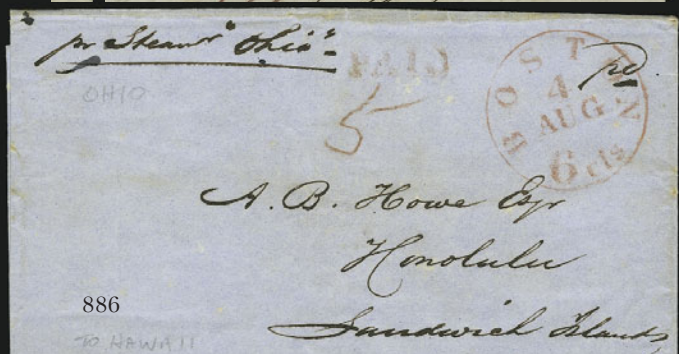 pr Steamr "Ohio"
PAID
OHIO
5
BOSTON
4
AUG
6 cts
pd
A. B. Howe Esqr
Honolulu
886
Sandwich Islands
TO HAWAII